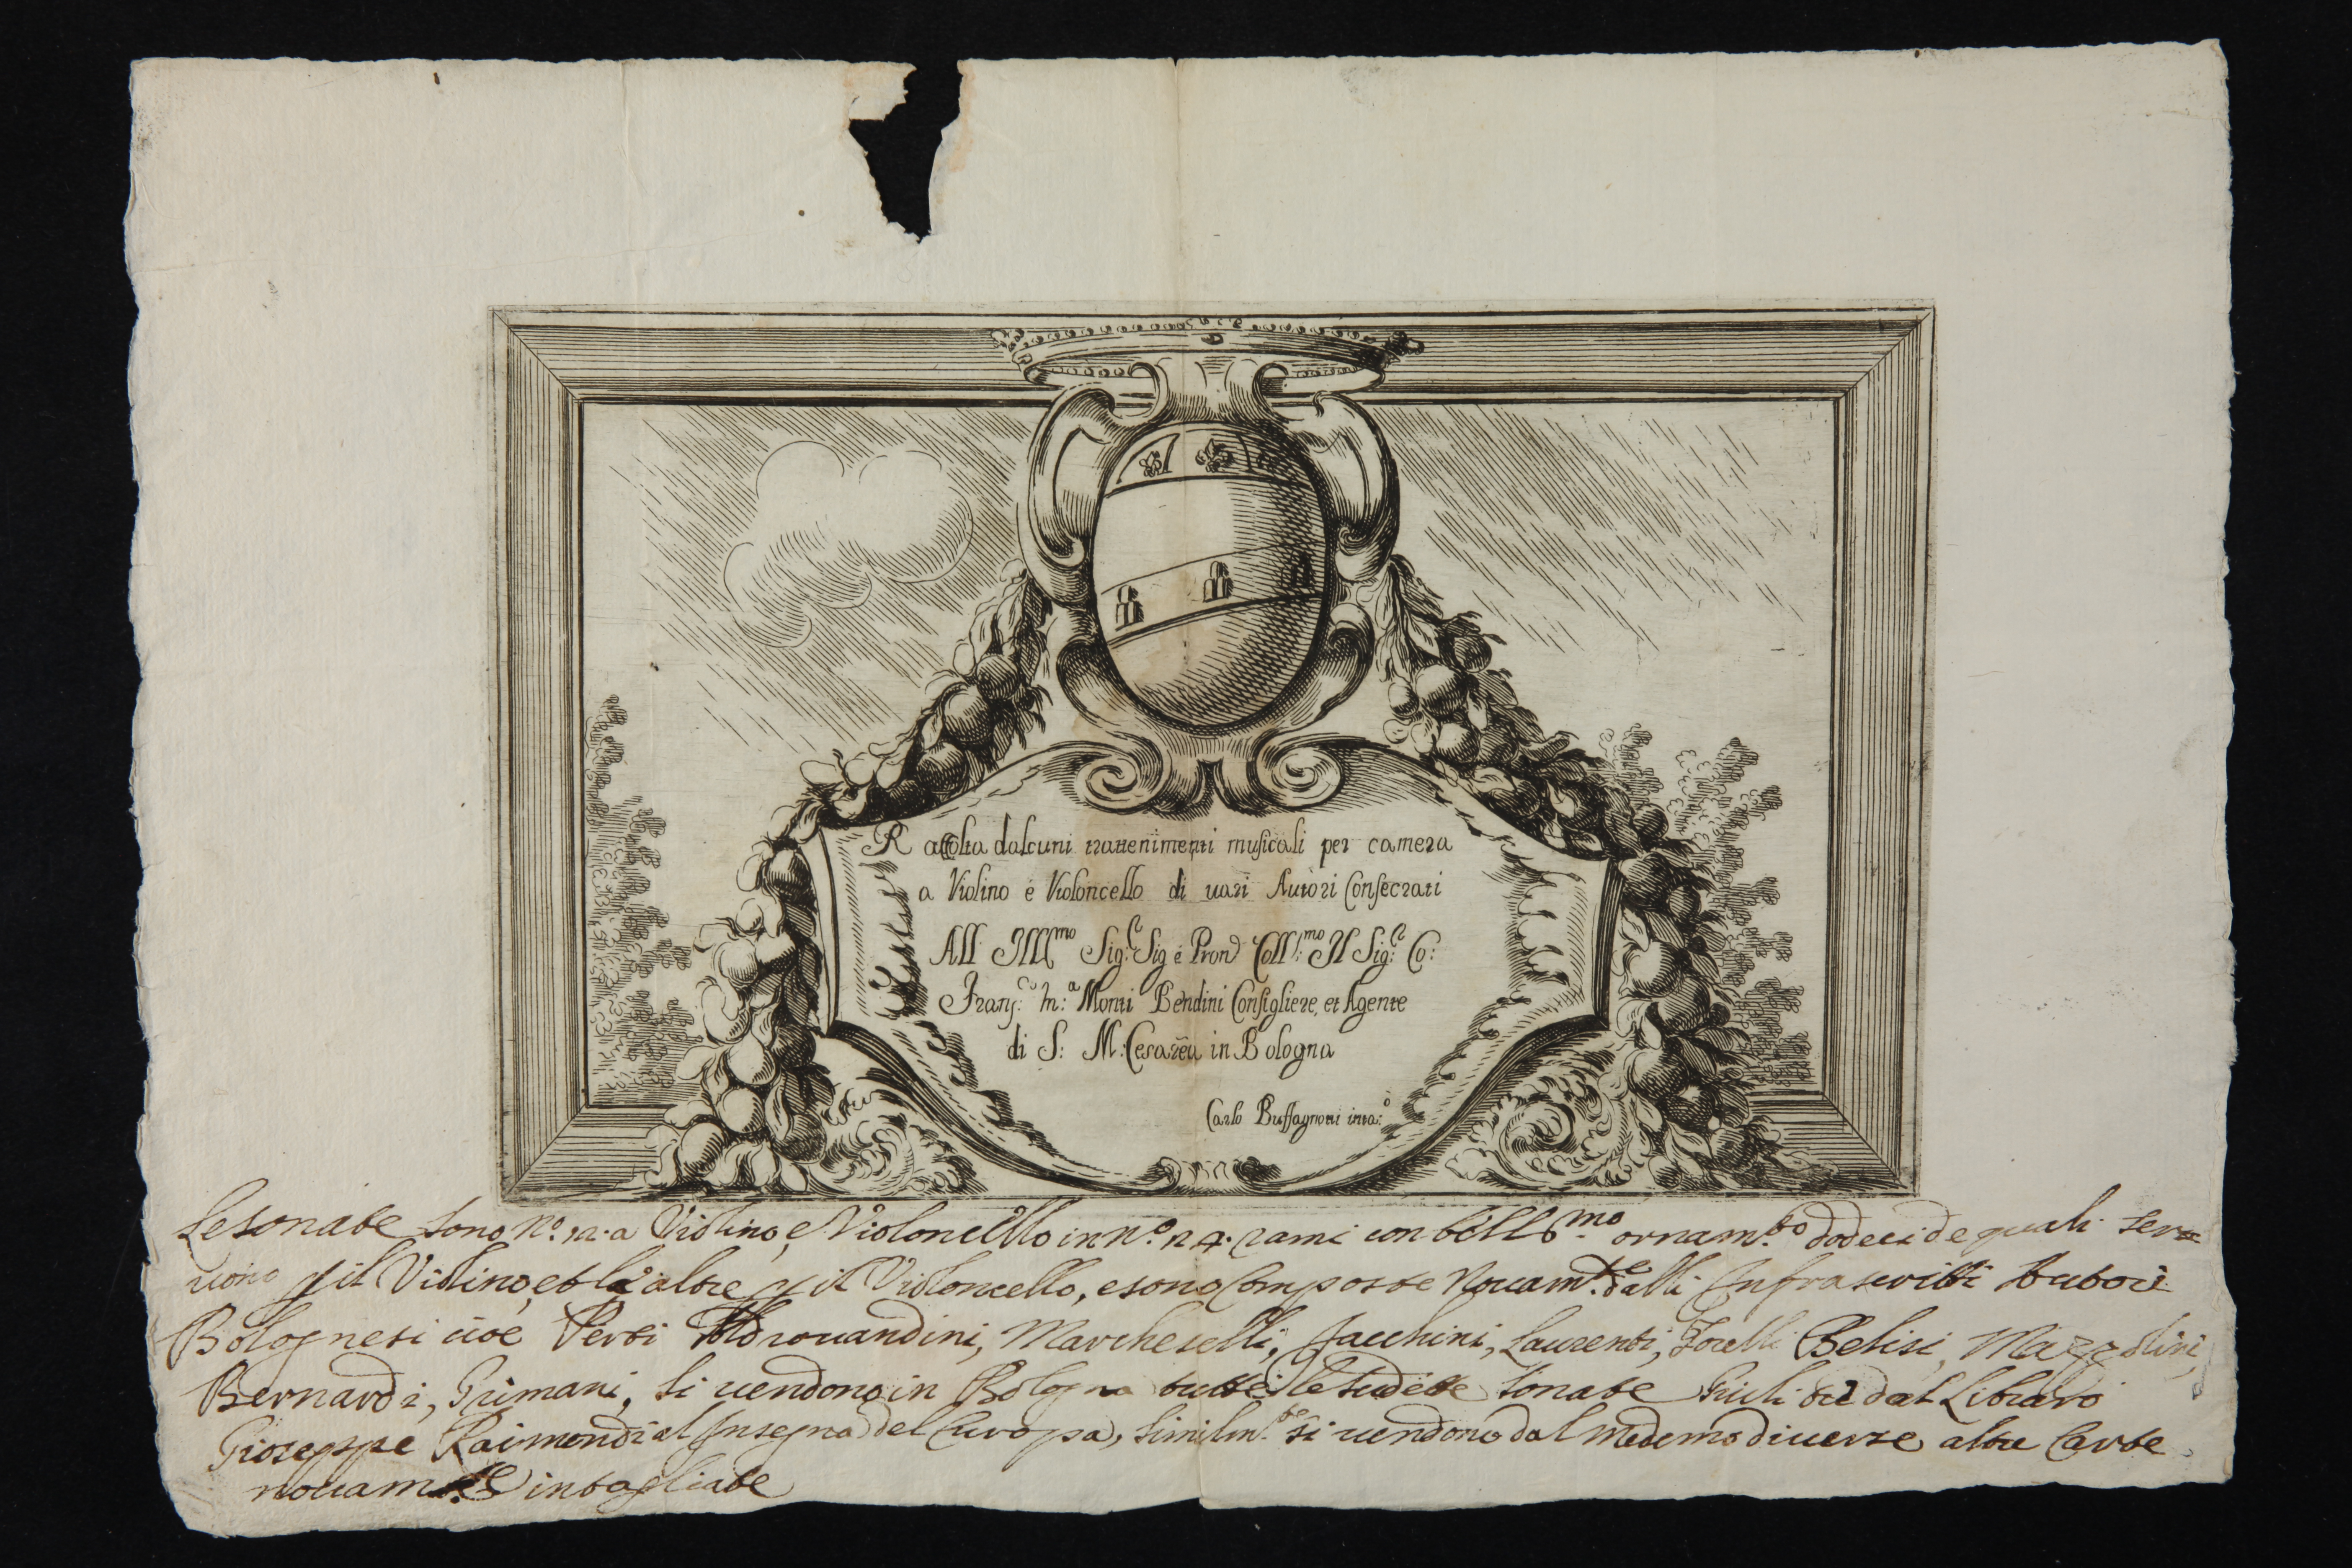 Raccolta dalcuni trattenimenti musicali per camera
a Violino e Violoncello di vari Autori Consecrati
All Ill^mo Sig:^r Sig e Pron Coll:^mo Il Sig:^r Co:
Franc:^co M:^a Monti Bendini Consigliere, et Agente
di S: M: Cesarea in Bologna
Carlo Buffagnotti inta:^o
Le sonate sono N:^o 12 a Violino, e Violoncello in N.^o 24. rami con bell^mo ornam.^to dodeci de quali ser=
uono p il Violino, et le altre p il Violoncello, e sono Composte Nouam.^te dalli Infrascritti Autori
Bolognesi cioe Perti Aldrouandini, Marcheselli, Jacchini, Laurenti, Torelli Belisi, Mazzolini,
Bernardi, Grimani, si uendono in Bologna tutte le sudette sonate Giuli dal Libraro
Gioseppe Raimondi al Insegna del Europa, similm.^te si uendono dal Medemo diuerse altre Carte
nouam.^te intagliate